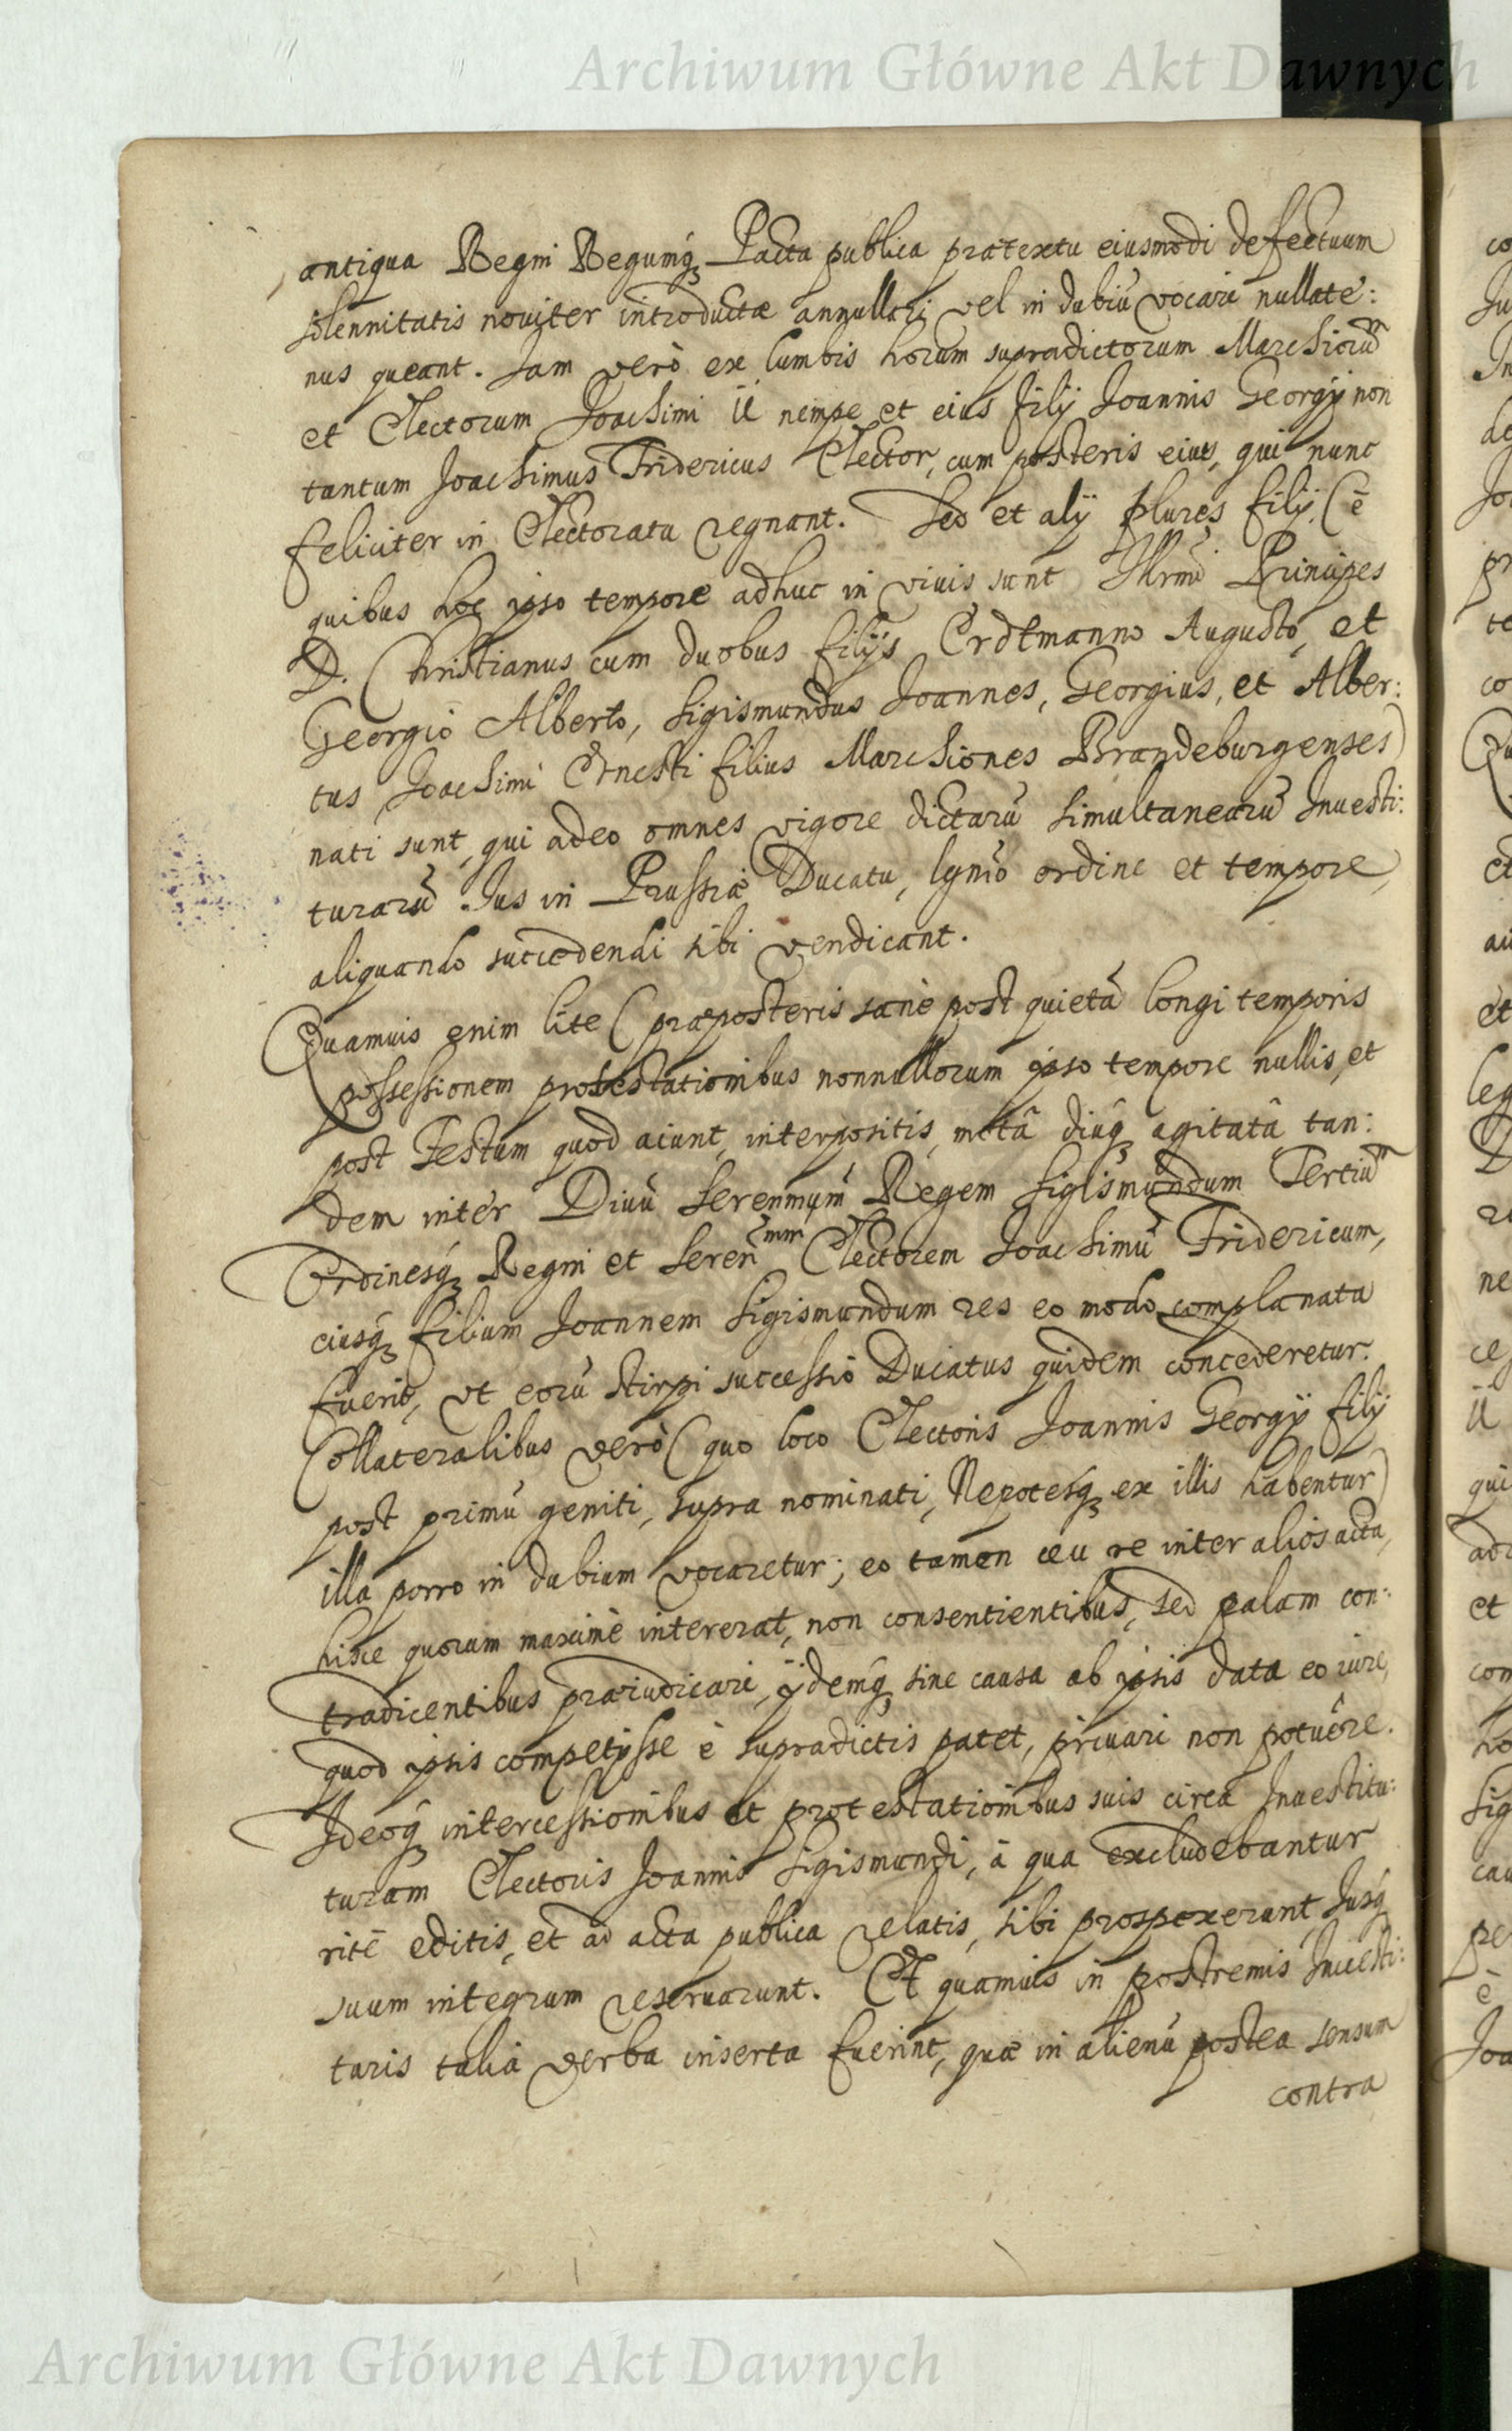 Archiwum Główne Akt Dawnych
antiqua Regni Regumq́ꝫ Pacta publica prætextu eiusmodi defectuum
solennitatis nouiter introductæ annullari vel in dubiũ vocari nullate:
nus queant. Iam verò ex lumbis horum supradictorum Marchionũ
et Electorum Joachimi II nempe et eius filij Joannis Georgij non
tantum Joachimus Fridericus Elector, cum posteris eius, qui nunc
feliciter in Electoratu regnant. Sed et alij plures filij, (è
quibus hoc ipso tempore adhuc in viuis sunt Illrmi Principes
D. Christianus cum duobus filijs Erdtmanno Augusto, et
Georgio Alberto, Sigismundus Joannes, Georgius, et Alber:
tus Joachimi Ernesti filius Marchiones Brandeburgenses)
nati sunt, qui adeo omnes vigore dictarũ simultanearũ Inuesti:
turarũ Jus in Prussiæ Ducatu, ordine et tempore,
aliquando succedendi sibi vendicant.
Quamuis enim lite (præposteris sanè post quietã longi temporis
possessionem protestationibus nonnullorum ipso tempore nullis, et
post Festum quod aiunt, interpositis, motâ diuq́ꝫ agitatâ tan:
dem inter Diuũ Serenmum Regem Sigismundum Tertiũ
Ordinesq́ꝫ Regni et Seren̄mm Electorem Joachimũ Fridericum,
eiusq́ꝫ filium Joannem Sigismundum res eo modo complanata
fuerit, vt eorũ stirpi successio Ducatus quidem concederetur.
Collateralibus verò (quo loco Electoris Joannis Georgij filij
post primũ geniti, supra nominati, Nepotesq́ꝫ ex illis habentur)
illa porro in dubium vocaretur; eo tamen ceu re inter alios acta,
hisce quorum maximè intererat, non consentientibus, sed palam con:
tradicentibus præiudicari, ijdemq́ꝫ sine causa ab ipsis data eo iure,
quod ipsis competijsse è supradictis patet, priuari non potuêre.
Ideoq́ꝫ intercessionibus et protestationibus suis circa Inuestitu:
turam Electoris Joannis Sigismundi, à qua excludebantur
ritè editis, et ad acta publica relatis, sibi prospexerunt, Jusq́ꝫ
suum integrum reseruarunt. Et quamuis in postremis Inuesti:
turis talia verba inserta fuerint, quæ in alienũ postea sensum
contra
Archiwum Główne Akt Dawnych